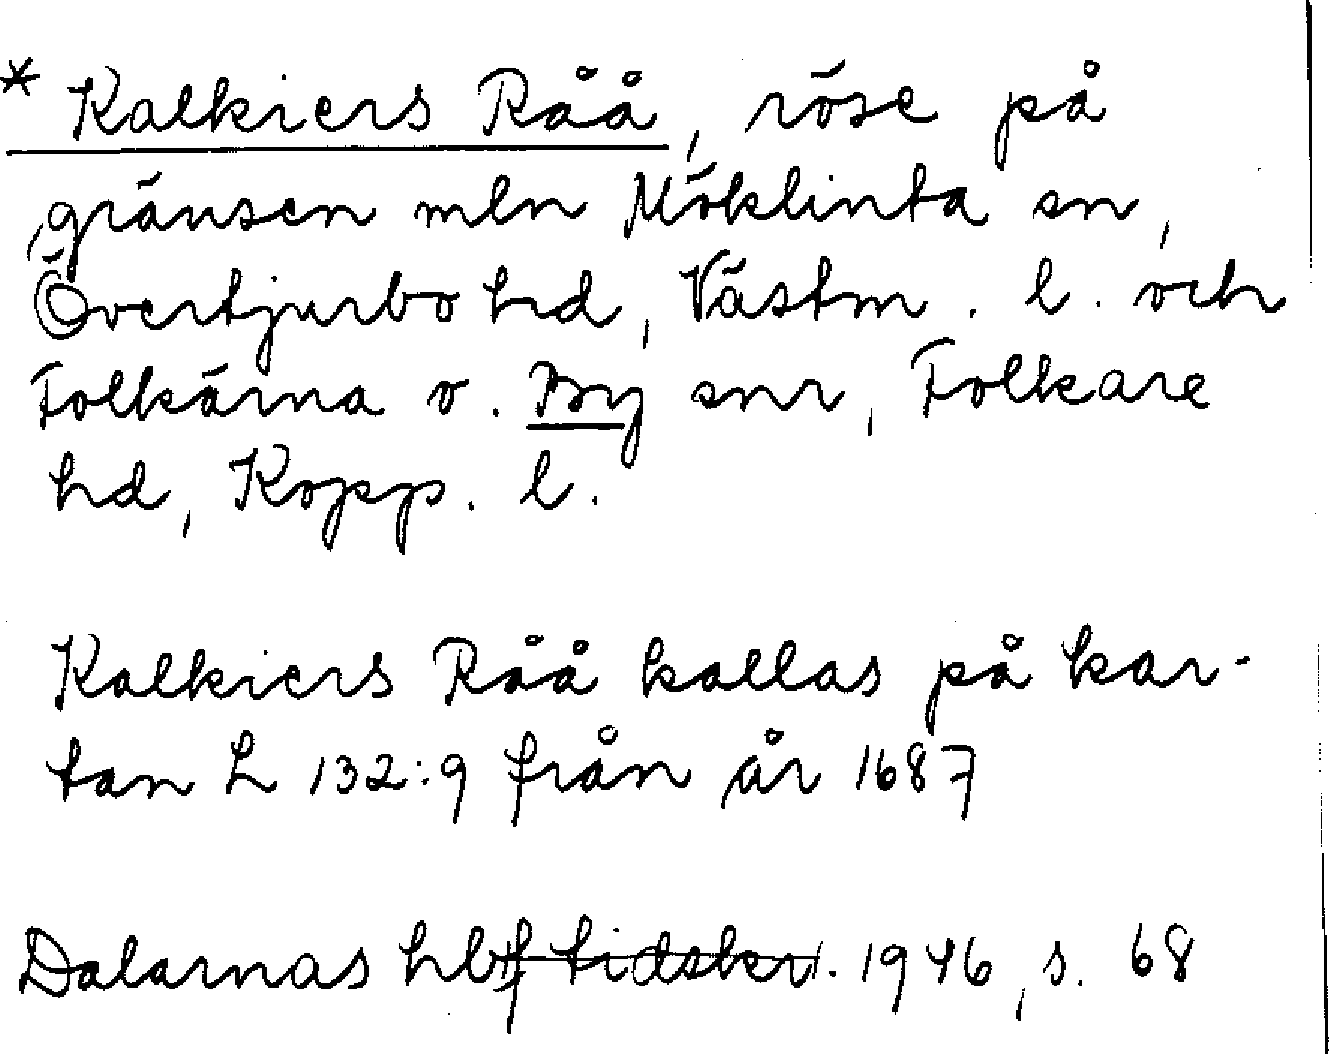 * Kalkiers Råå, röse på
gränsen mln Möklinta sn,
Övertjurbo hd, Västm. l. och
Folkärna o. By snr, Folkare
hd, Kopp. l.
Kalkiers Råå kallas på kar-
tan L 132:9 från år 1687
Dalarnas hbf tidskr. 1946, s. 68